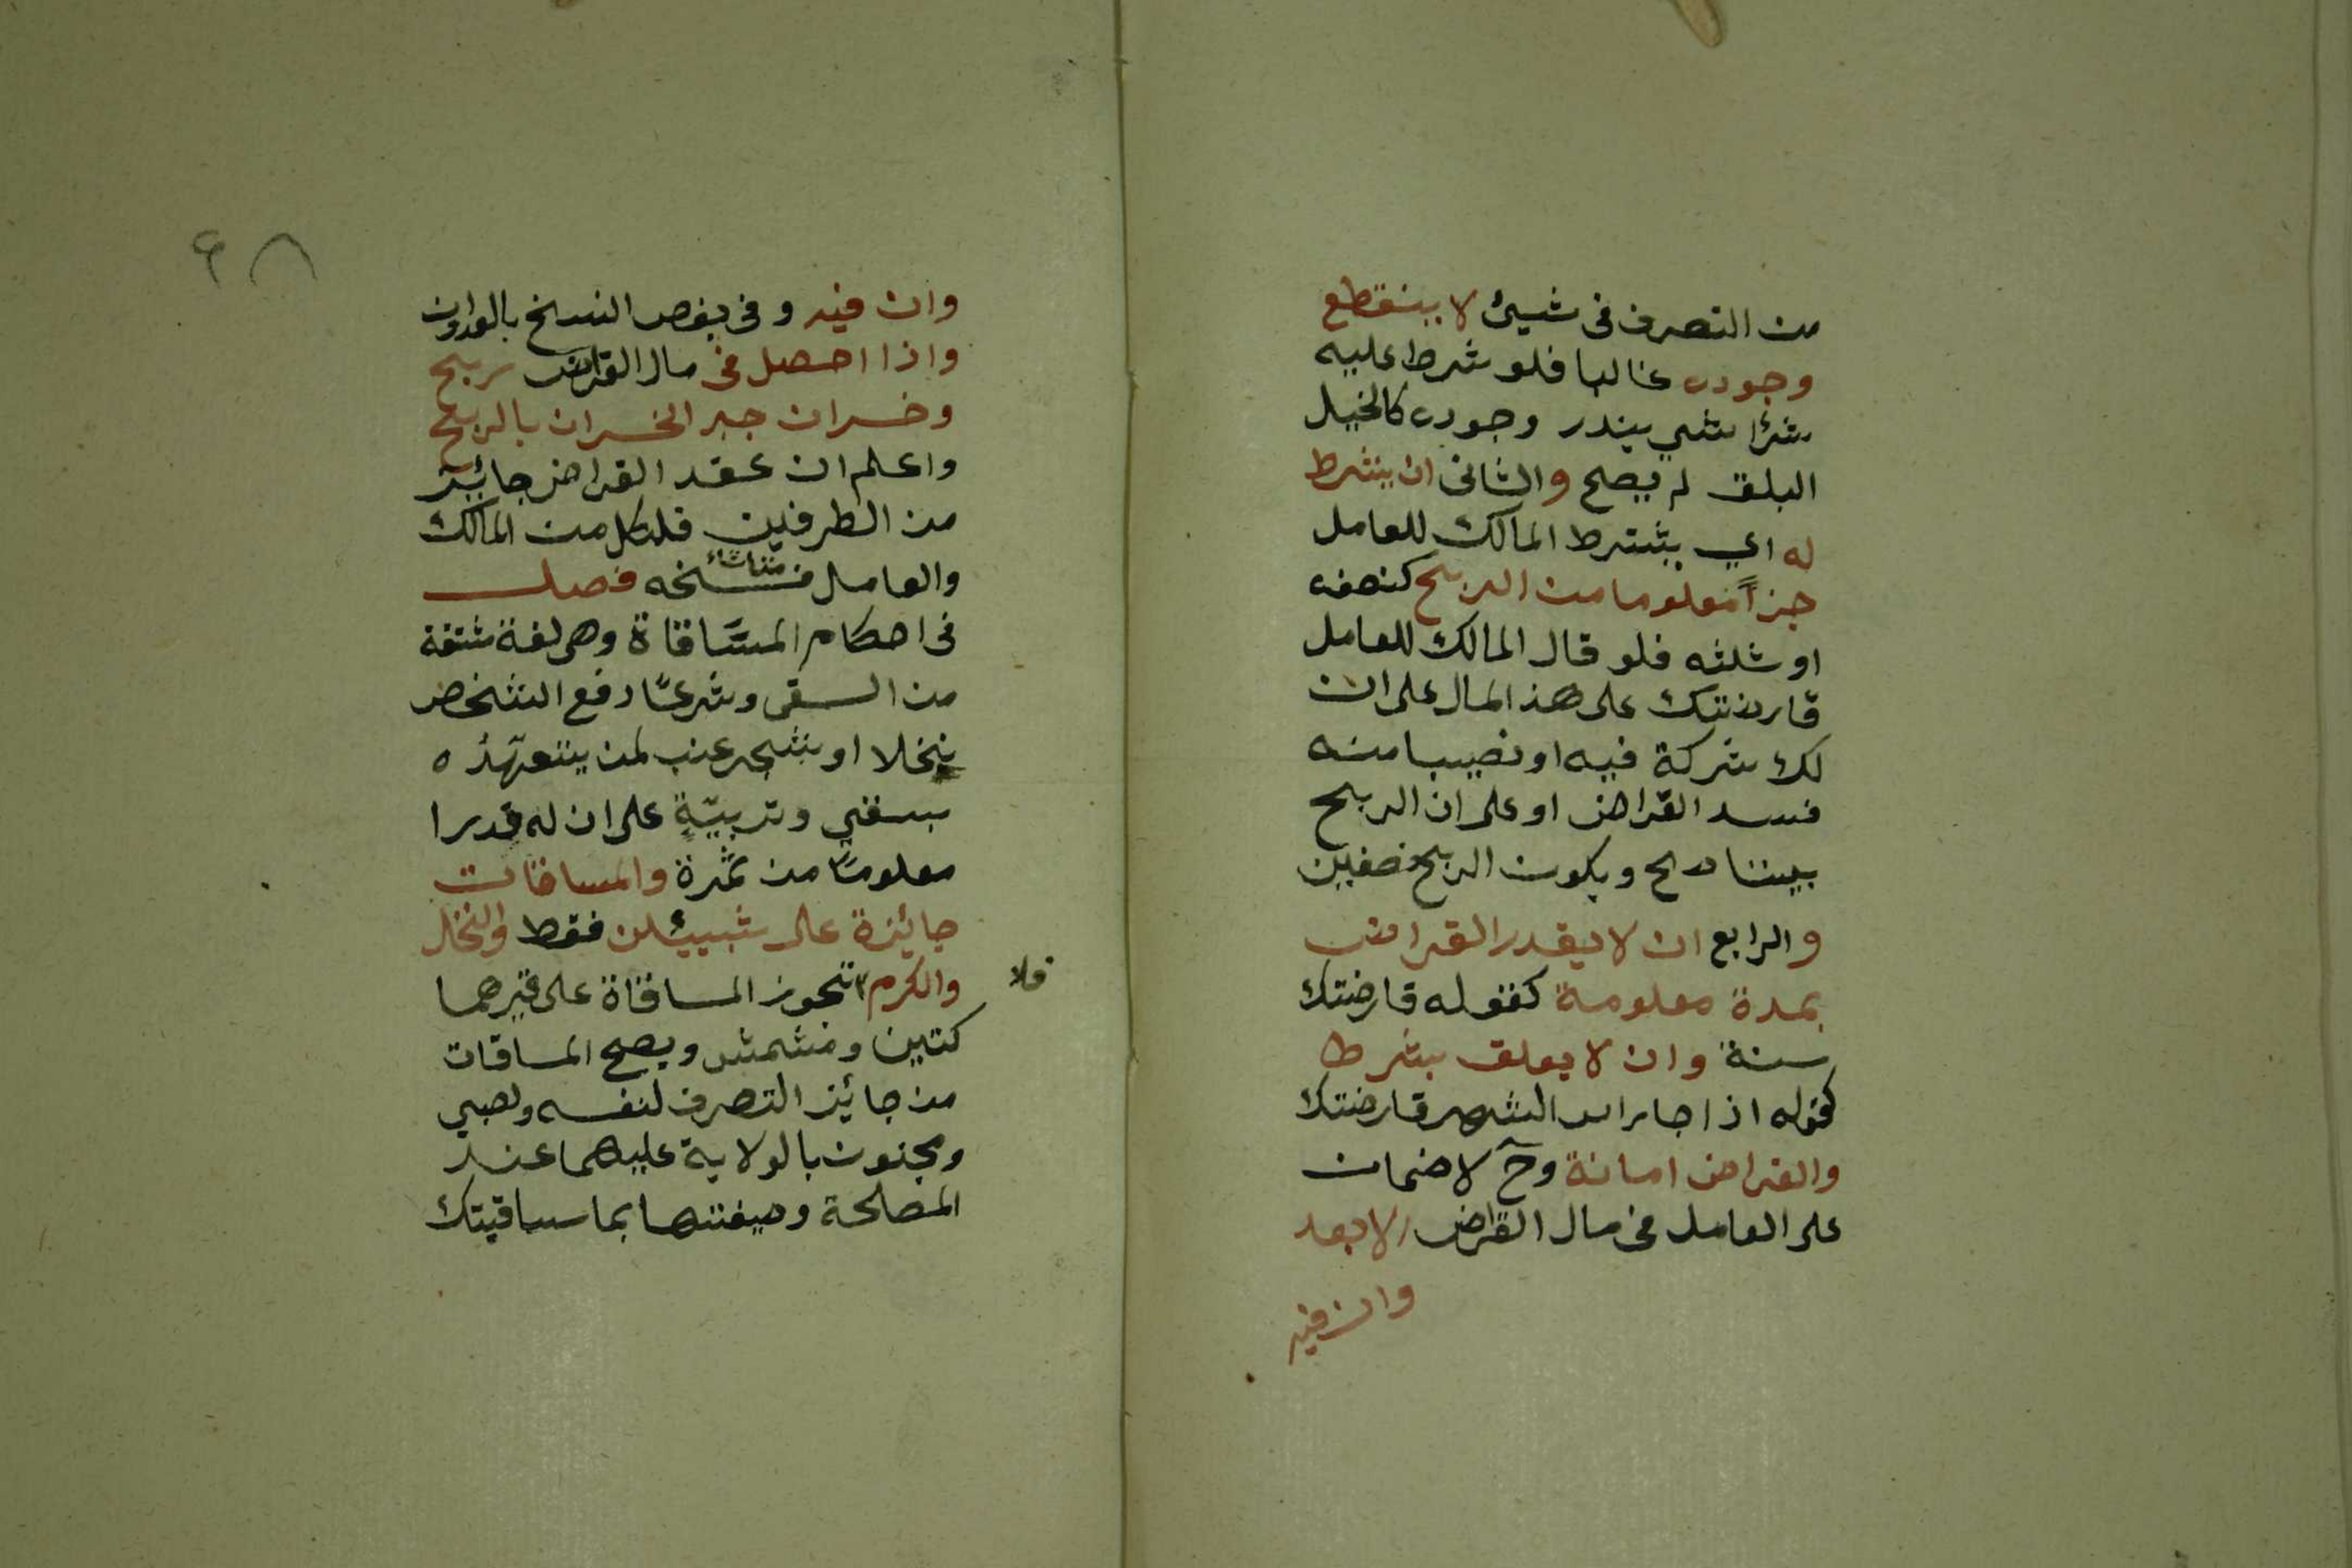 من التصرف فى شيئ لا ينقطع
وجوده غالبا فلو شرط عليه
شرٔا شي يندر وجوده كالخيل
البلق لم يصح والثانى ان يشرط
له اي يشترط المالك للعامل
جزأً معلوما من الربح كنصفه
او ثلثه فلو قال المالك للعامل
قارضتك على هذ المال على ان
لك شركة فيه او نصيبا منه
فسد القراض او على ان الربح
بيننا صح ويكون الربح نصفين
والرابع ان لا يقدر القراض
بمدة معلومة كقوله قارضتك
سنة وان لا يعلق بشرط
كقوله اذا جا راس الشهر قارضتك
والقراض امانة وحٓ لا ضمان
على العامل فى مال القراض الا بعد
وان فيه
٦٨
وان فيه و فى بعص النسخ بالعدوان
واذا احصل فى مال القراض ربح
وخسران جبر الخسران بالربح
واعلم ان عقد القراض جائيز
من الطرفين فلكل من المالك
والعامل فسخه متىاشاء فصل
فى احكام المسَاقاة وهى لغة مشتقة
من السقى وشرعًا دفع الشخص
نخلا او شجر عنب لمن يتعهّدُه
بسقي وتربيّةٍ على ان له قدرا
معلومًا من ثمَرة والمساقات
جائزة على شيئين فقط والنخل
والكرم فلا تجوز المساقاة على غيرهما
كتين ومشمش ويصح المساقات
من جائيز التصرف لنفسه ولصبي
ومجنون بالولاية عليهما عند
المصلحة وصيغتها بما ساقيتك